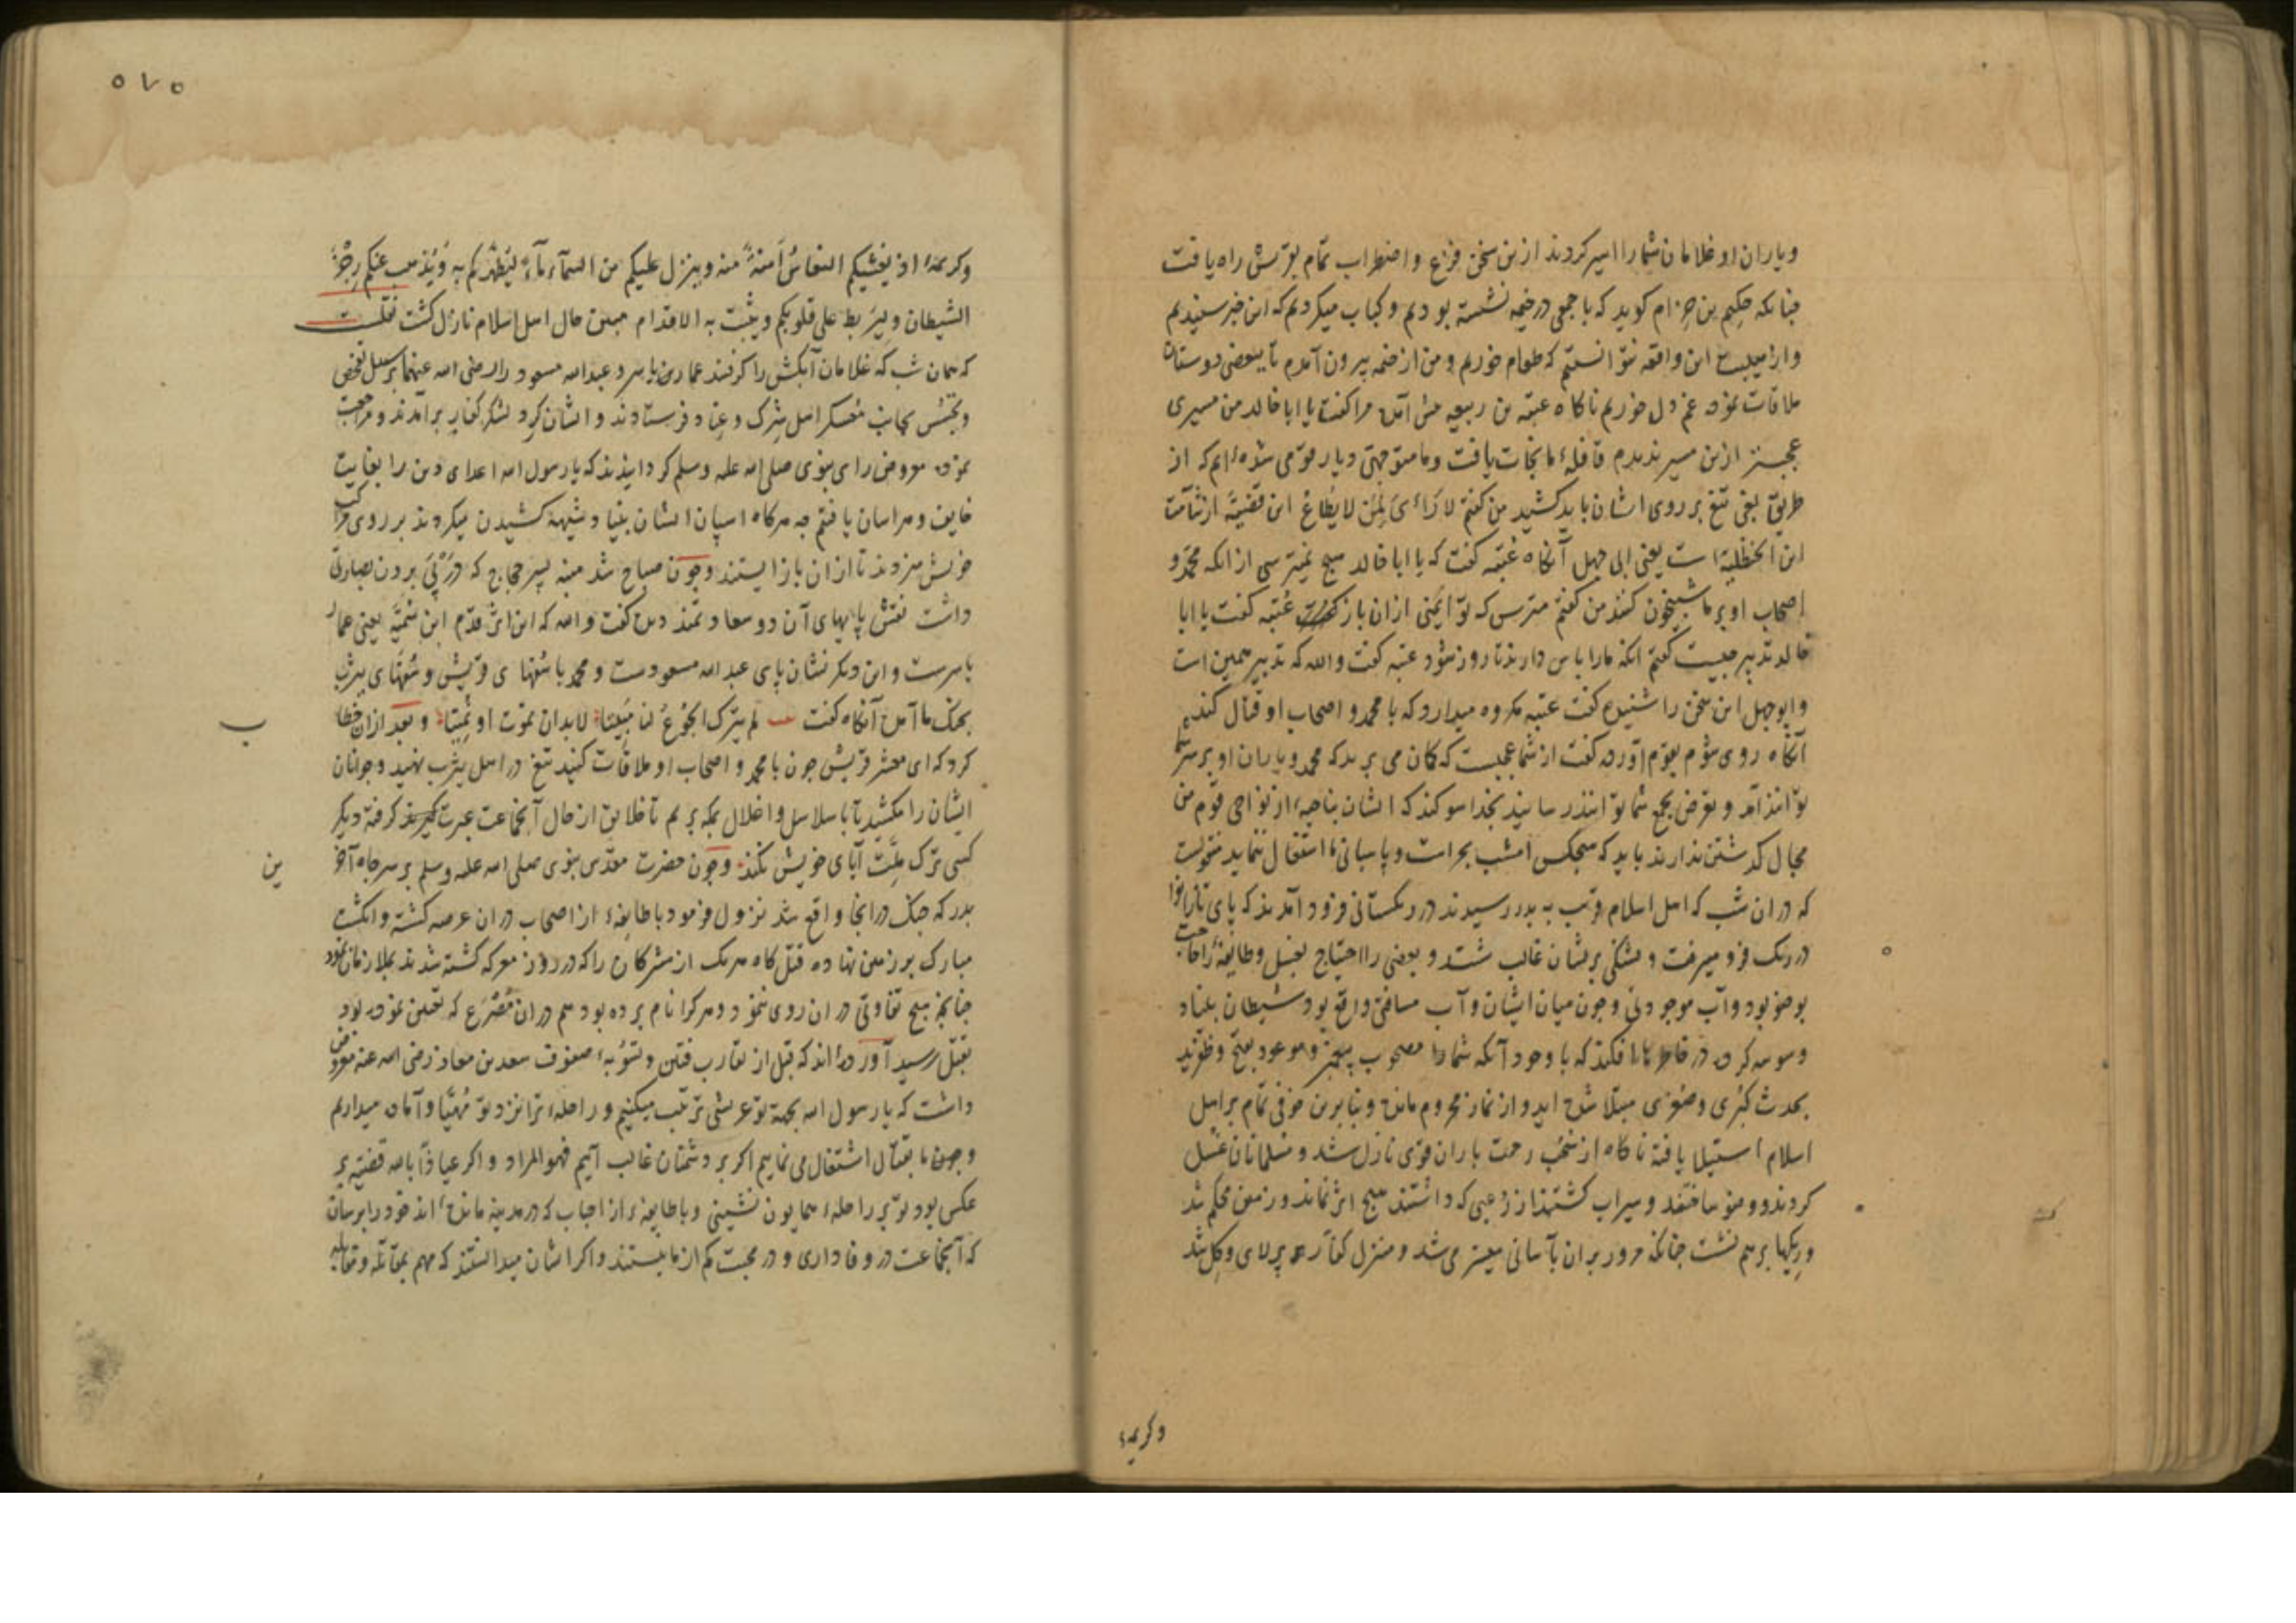 و یاران او غلامان شما را اسیر کردند ازین سخن فزاع و اضطراب تمام بقریش راه یافت
چنانکه حکیم بن حزام کوید که با جمعی در خیمه نشسته بودیم و کباب میکردیم که این خبر شنیدیم
و از این واقعه نتوانستیم که طعام خوریم و من از خیمه بیرون آمدم تا ببعضی دوستان
ملاقات نموده غم دل خوریم ناکاه عتبه بن ربیعه پیش آمده مرا کفت یا ابا خالد من مسیری
عجیبتر ازین مسیر ندیدم قافلهٔ ما نجات یافت و ما متوجه دیار قومی شده‌ایم که از
طریق بغی تیغ بر روی ایشان باید کشید من کفتم لا رای لمن لا یطاع این قضیه از شآمت
ابن الحنظلیة است یعنی ابی جهل آنکاه عتبه کفت که یا ابا خالد هیچ نمیترسی از انکه محمد و
اصحاب او بر ما شبیخون کنند من کفتم مترس که تو ایمنی ازان باز عتبه کفت یا ابا
خالد تدبیر چیست کفتم انکه ما را پاس دارند تا روز شود عتبه کفت والله که تدبیر همین است
و ابو جهل این سخن را شنیده کفت عتبه مکروه میدارد که با محمد و اصحاب او قتال کند
آنکاه روی شوم بقوم آورده کفت از شما عجبست که کمان می برید که محمد و یاران او بر سر شما
توانند آمد و تعرض بجمع شما توانند رسانید بخدا سوکند که ایشان بناحیهٔ از نواحی قوم من
مجال کذشتن ندارند باید که هیچکس امشب بحراست و پاسبانی ما اشتغال ننماید منقولست
که دران شب که اهل اسلام قریب به بدر رسیدند در ریکستانی فرود آمدند که پای تا زانو
در ریک فرو میرفت و تشنکی بریشان غالب شد و بعضی را احتیاج بغسل و طایفهٔ را حاجت
بوضو بود و آب موجود نی و چون میان ایشان و آب مسافتی واقع بود شیطان بنیاد
وسوسه کرده در خاطر ها افکند که با وجود آنکه شما را مصحوب پیغمبر و موعود بفتح و ظفرید
بحدث کبری و صغری مبتلا شده اید و از نماز محروم مانده و بنابرین خوفی تمام بر اهل
اسلام استیلا یافته ناکاه از سحب رحمت باران قوی نازل شد و مسلمانان غسل
کردند و وضو ساختند و سیراب کشتند از رعبی که داشتند هیچ اثر نماند و زمین محکم شد
و ریکها بر هم نشست چنانکه مرور بران بآسانی میسر می شد و منزل کفار پر لای و کل شد
و کریمهٔ
۵۷۵
و کریمهٔ اذ یغشیکم النعاس امنة منه و ینزل علیکم من السمآء مآء لیطهرکم به و یذهب عنکم رجز
الشیطان و لیربط علی قلوبکم و یثبت به الاقدام مبین حال اهل اسلام نازل کشت نقلست
که همان شب که غلامان آبکش را کرفتند عمار بن یاسر و عبدالله مسعود را رضی الله عنهما بر سبیل تفحص
و تجسس بجانب معسکر اهل شرک و عناد فرستادند و ایشان کرد لشکر کفار برآمدند و مراجعت
نموده معروض رای نبوی صلی الله علیه وسلم کردانیدند که یا رسول الله اعدای دین را بغایت
خایف و هراسان یافتیم چه هرکاه اسپان ایشان بنیاد شیهه کشیدن میکردند بر روی مراکب
خویش میزدند تا ازان باز ایستند و چون صباح شد منبه پسر حجاج که در پی بردن بصارتی
داشت نقش پایهای آن دو سعادتمند دیده کفت والله که این اثر قدم ابن سمیه یعنی عمار
یاسرست و این دیکر نشان پای عبدالله مسعودست و محمد با سفهای قریش و سفهای یثرب
بجنک ما آمده آنکاه کفت لم یترک الجوع لنا مبیتا لابد ان نموت او نمیتا و بعد ازان خطاب
کرد که ای معشر قریش چون با محمد و اصحاب او ملاقات کنید تیغ در اهل یثرب نهید و جوانان
ایشان را مکشید تا با سلاسل و اغلال بمکه بریم تا خلایق از حال آنجماعت عبرت کرفته دیکر
کسی ترک ملت آبای خویش نکند و چون حضرت مقدس نبوی صلی الله علیه وسلم بر سر چاه آخر
ین
بدر که جنک در انجا واقع شد نزول فرمود با طایفهٔ از اصحاب دران عرصه کشته و انکشت
مبارک بر زمین نهاده قتلکاه هر یک از مشرکان را که در روز معرکه کشته شدند بملازمان نمود
چنانچه هیچ تفاوتی دران روی ننمود و هر کرا نام برده بود هم دران مصرع که تعیین نموده بود
بقتل رسید آورده‌اند که قبل از تقارب فئتین و تسویهٔ صفوف سعد بن معاذ رضی الله عنه معروض
داشت که یا رسول الله بجهة تو عریشی ترتیب میکنیم و راحلهٔ ترا نزد تو مهیا و آماده میداریم
و چون ما بقتال اشتغال می نماییم اکر بر دشمنان غالب آییم فهو المراد و اکر عیاذا بالله قضیه بر
عکس بود تو بر راحلهٔ همایون نشینی و با طایفهٔ از احباب که در مدینه مانده‌اند خود را برسان
که آنجماعت در وفاداری و در محبت کم از ما نیستند و اکر ایشان میدانستند که مهم بمقاتله و مقابله